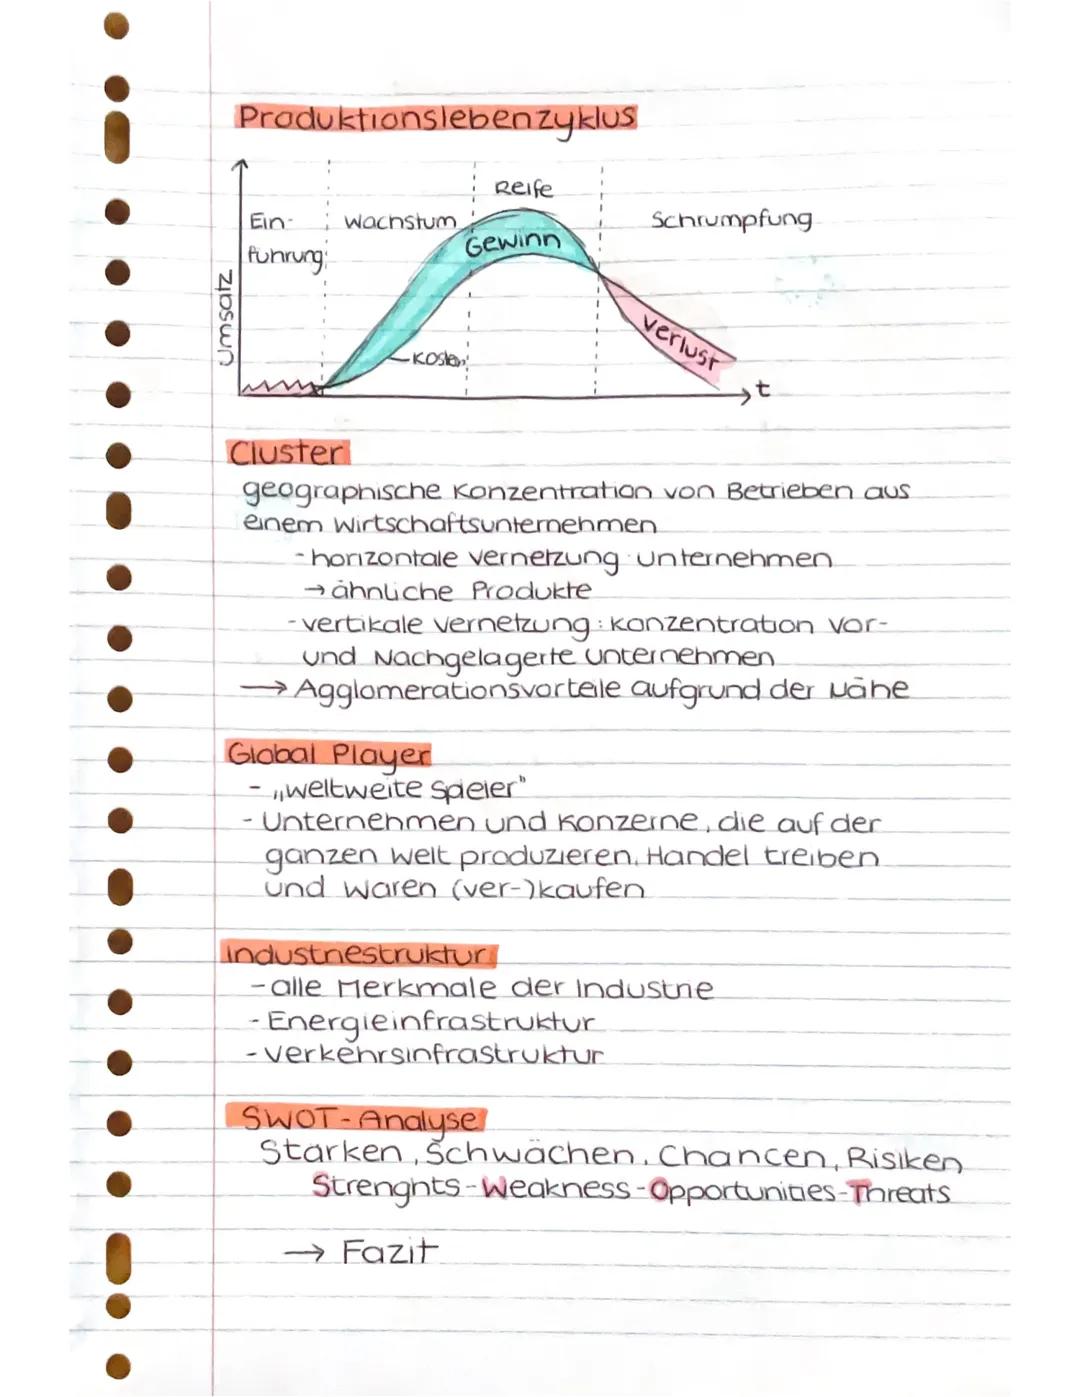 Produktionslebenzyklus
Reife
Ein- Wachstum Schrumpfung
führung
Gewinn
Umsatz
Verlust
Kosten
t
Cluster
geographische Konzentration von Betrieben aus
einem Wirtschaftsunternehmen
- horizontale Vernetzung Unternehmen
→ ähnliche Produkte
- vertikale Vernetzung: Konzentration vor-
und Nachgelagerte Unternehmen
→ Agglomerationsvorteile aufgrund der Nähe
Global Player
- „weltweite Spieler"
- Unternehmen und Konzerne, die auf der
ganzen Welt produzieren, Handel treiben
und Waren (ver-)kaufen
Industriestruktur
- alle Merkmale der Industrie
- Energieinfrastruktur
- Verkehrsinfrastruktur
SWOT-Analyse
Stärken, Schwächen, Chancen, Risiken
Strenghts-Weakness-Opportunities-Threats
→ Fazit